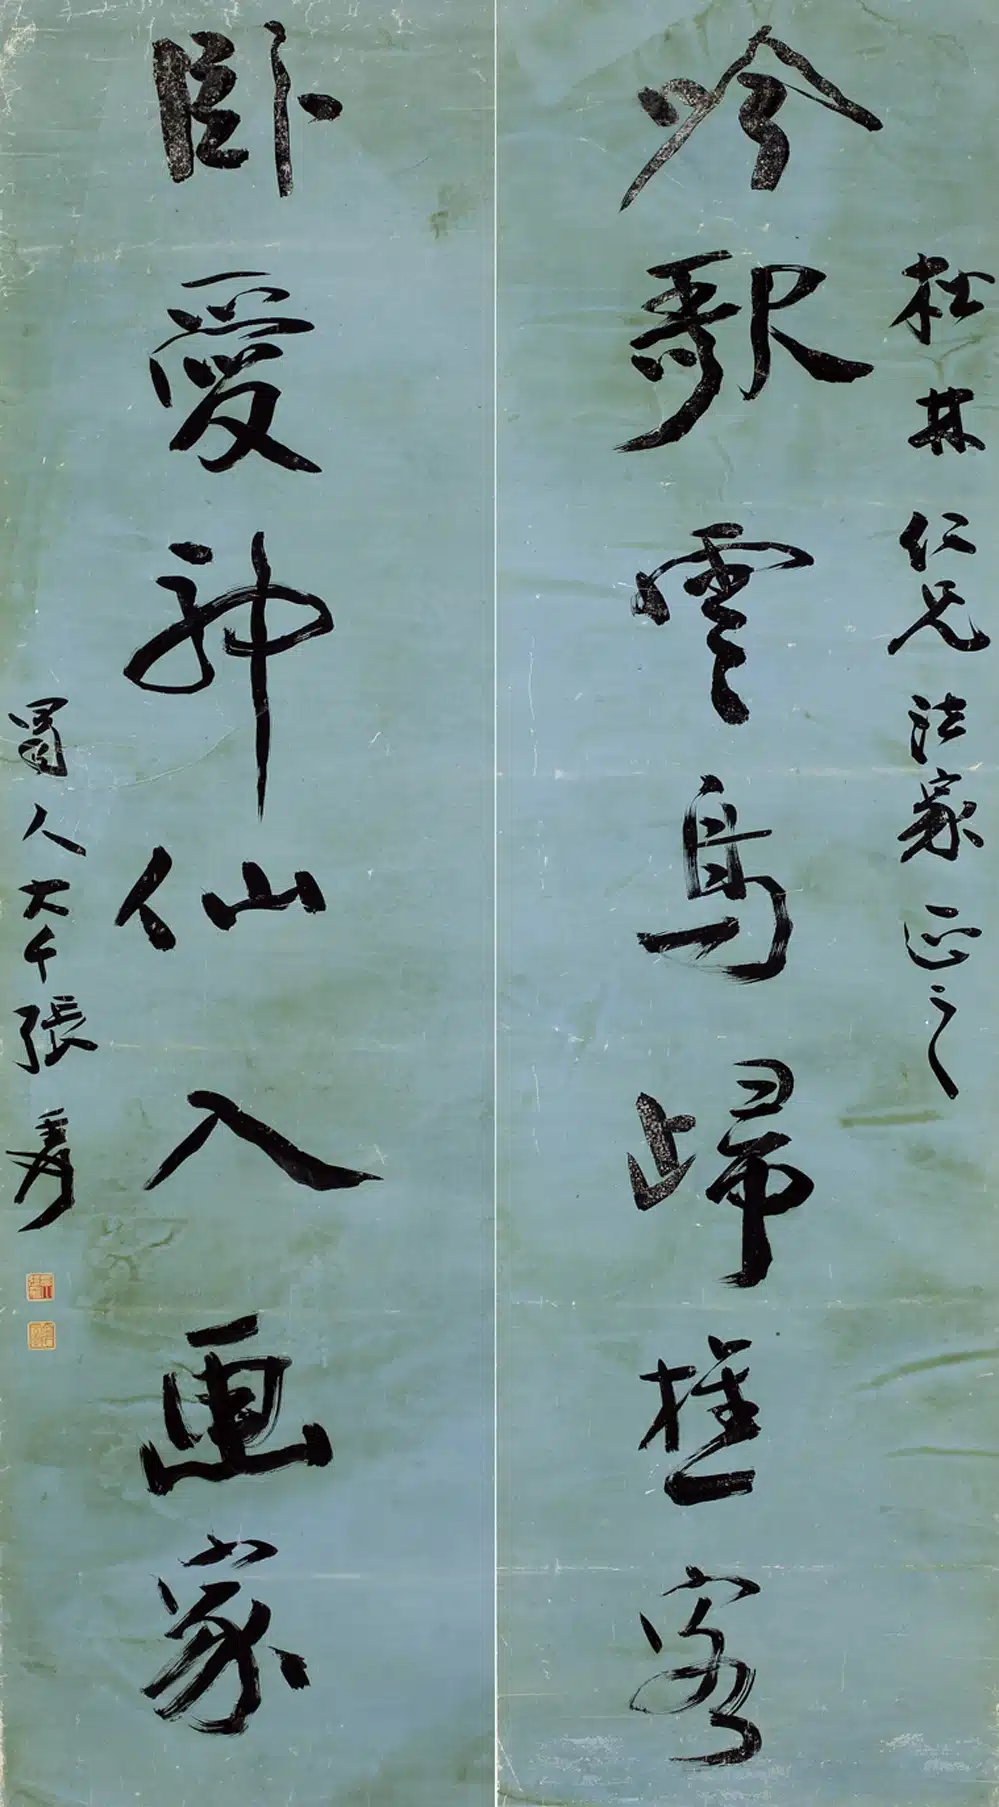 松林仁兄法家正之
吟歌雲鳥歸樵客
卧愛神仙入画家
蜀人大千張爰